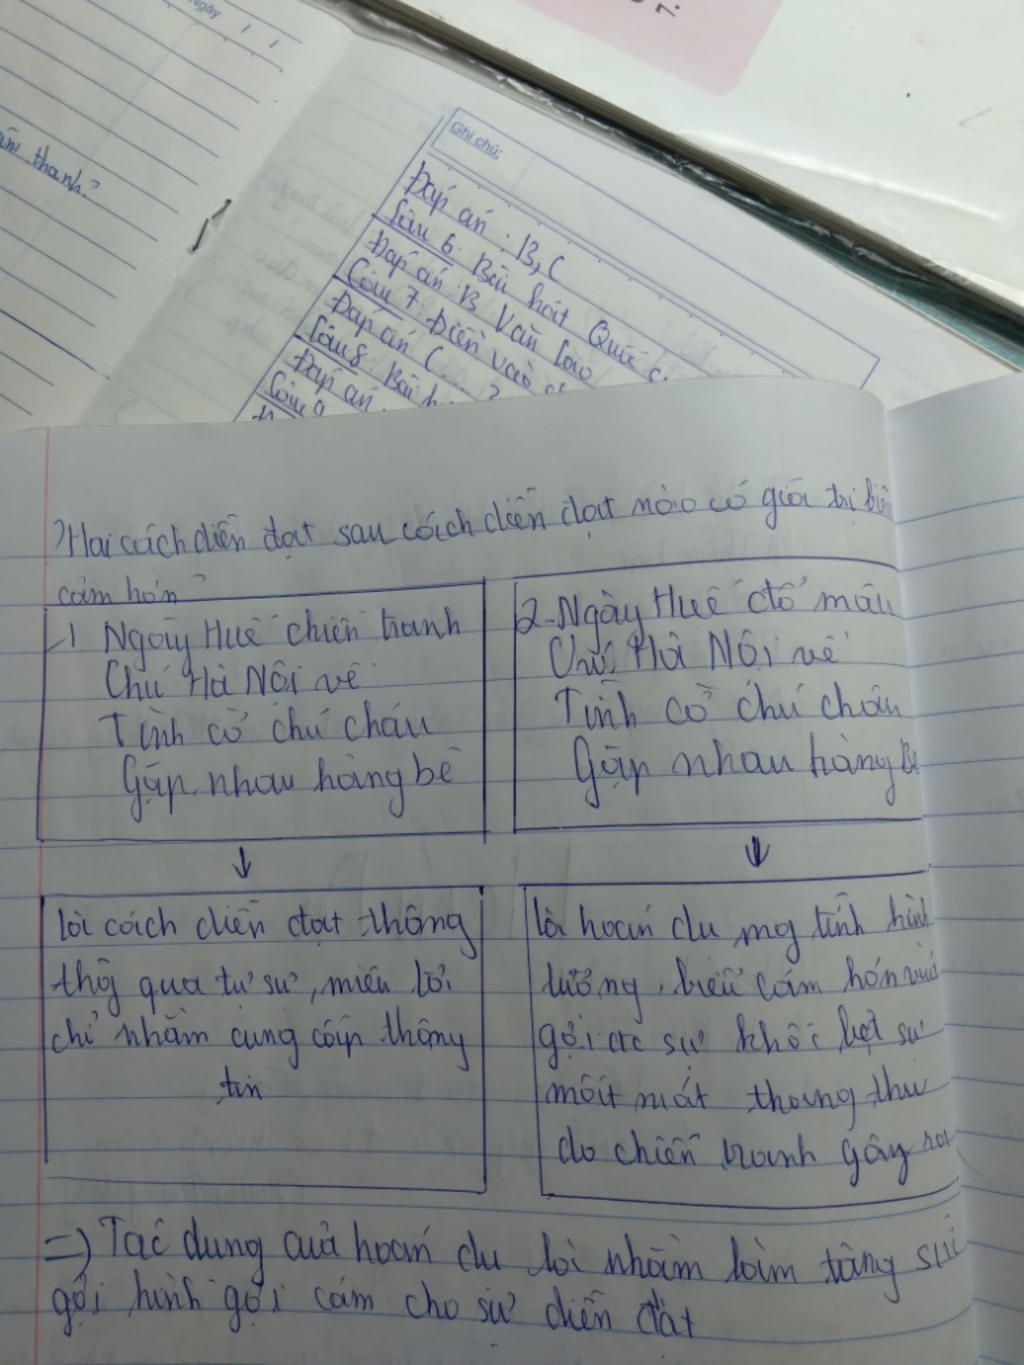 Ngày / /
thanh?
Ghi chú:
Đáp án: B, C
Câu 6. Bài hát Quốc c
Đáp án: B Văn Cao
Câu 7. Điền vào
Đáp án C....?
Câu 8. Bài h
Đáp án.
Câu 9
? Hai cách diễn đạt sau cách diễn đạt nào có giá trị biểu
cảm hơn?
1. Ngày Huế chiến tranh
Chú Hà Nội về
Tình cờ chú cháu
Gặp nhau hàng bè
2. Ngày Huế đổ máu
Chú Hà Nội về
Tình cờ chú cháu
Gặp nhau hàng Bè
↓
↓
là cách diễn đạt thông
thg qua tự sự, miêu tả
chỉ nhằm cung cấp thông
tin
là hoán dụ mg tính hình
tượng, biểu cảm hơn vừa
gợi đc sự khốc liệt sự
mất mát thương
do chiến tranh gây ra
=) Tác dụng của hoán dụ là nhằm làm tăng sức
gợi hình gợi cảm cho sự diễn đạt